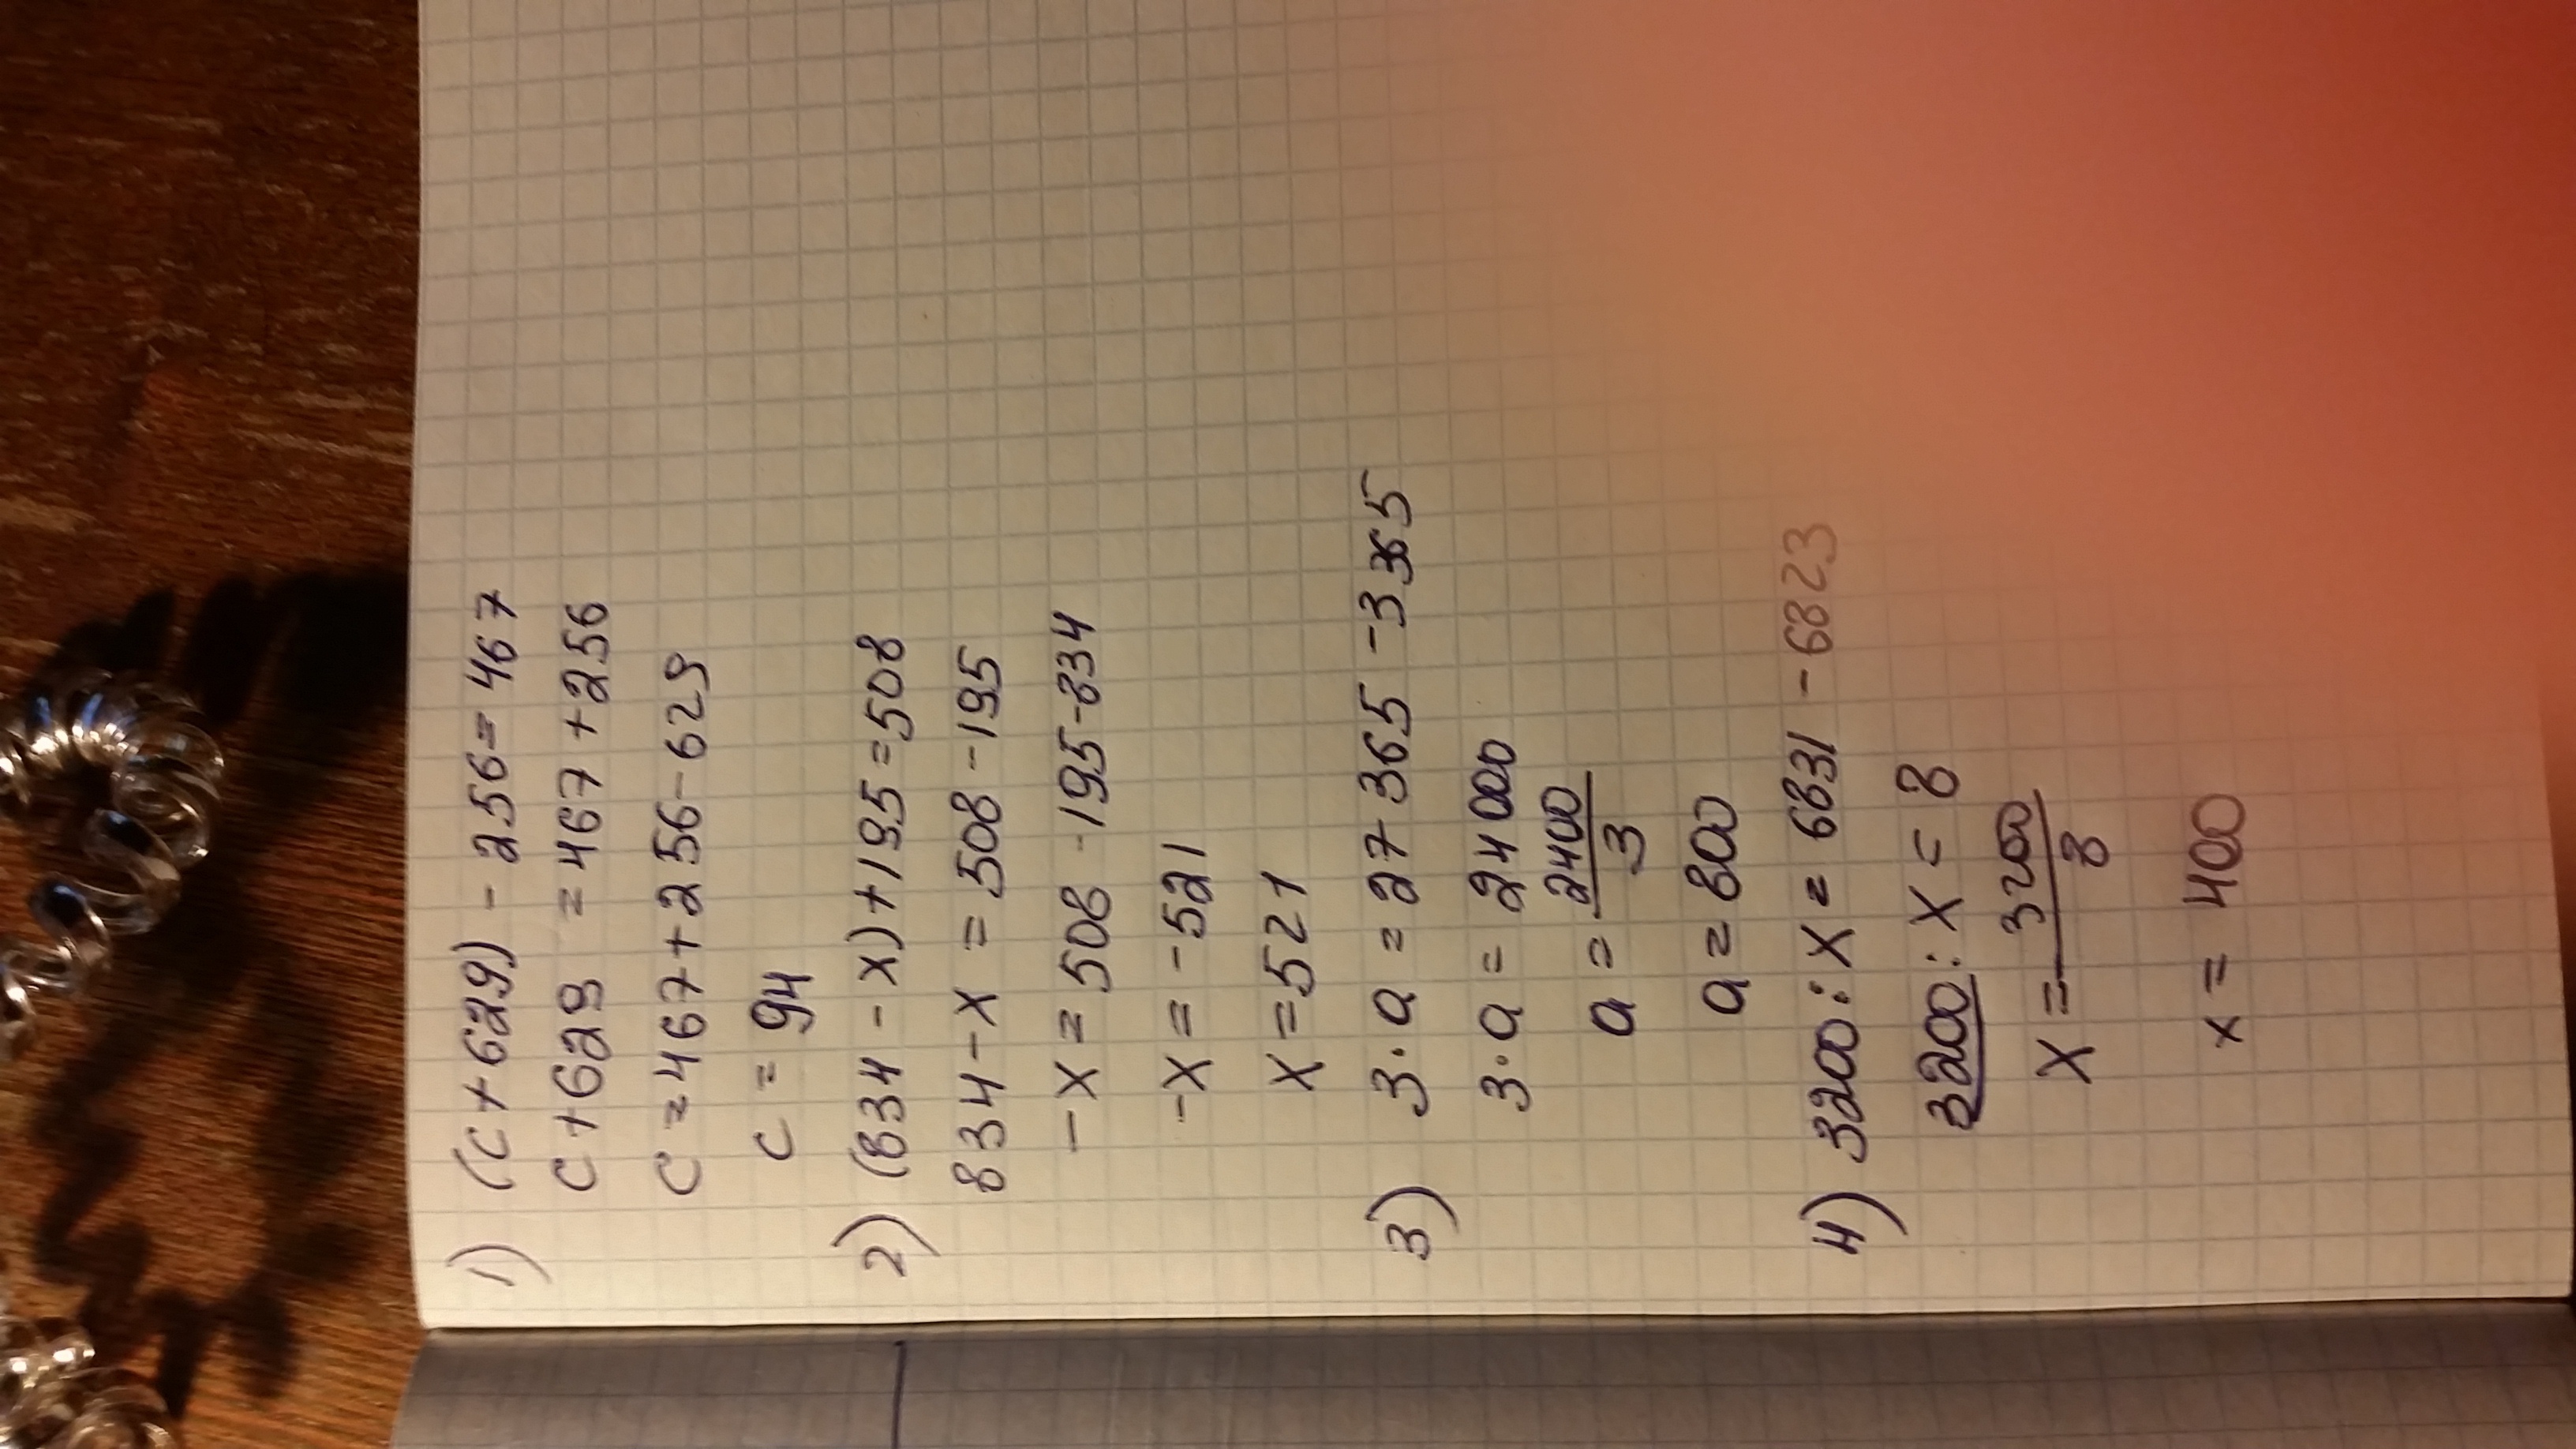 1) (c + 629) - 256 = 467
c + 629 = 467 + 256
c = 467 + 256 - 629
c = 94
2) (834 - x) + 195 = 508
834 - x = 508 - 195
- x = 508 - 195 - 834
- x = - 521
x = 521
3) 3 · a = 27 365 - 3 365
3 · a = 24 000
a = 2400/3
a = 800
4) 3200 : x = 6831 - 6823
3200 : x = 8
x = 3200/8
x = 400